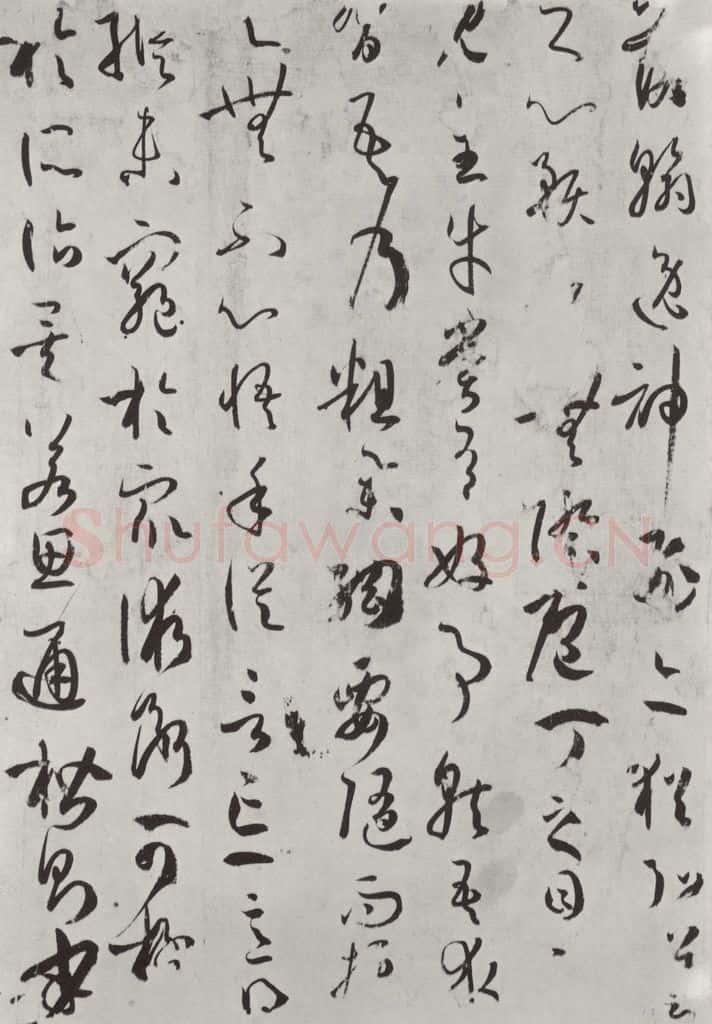 落翰逸神飛亦猶弘羊
之心預乎無際庖丁之目不
見全牛嘗有好事就吾求
習吾乃粗舉綱要隨而授
之無不心悟手從言忘意得
縱未窮於衆術斷可極
於所詣矣若思通楷則少
Shufawang.CN